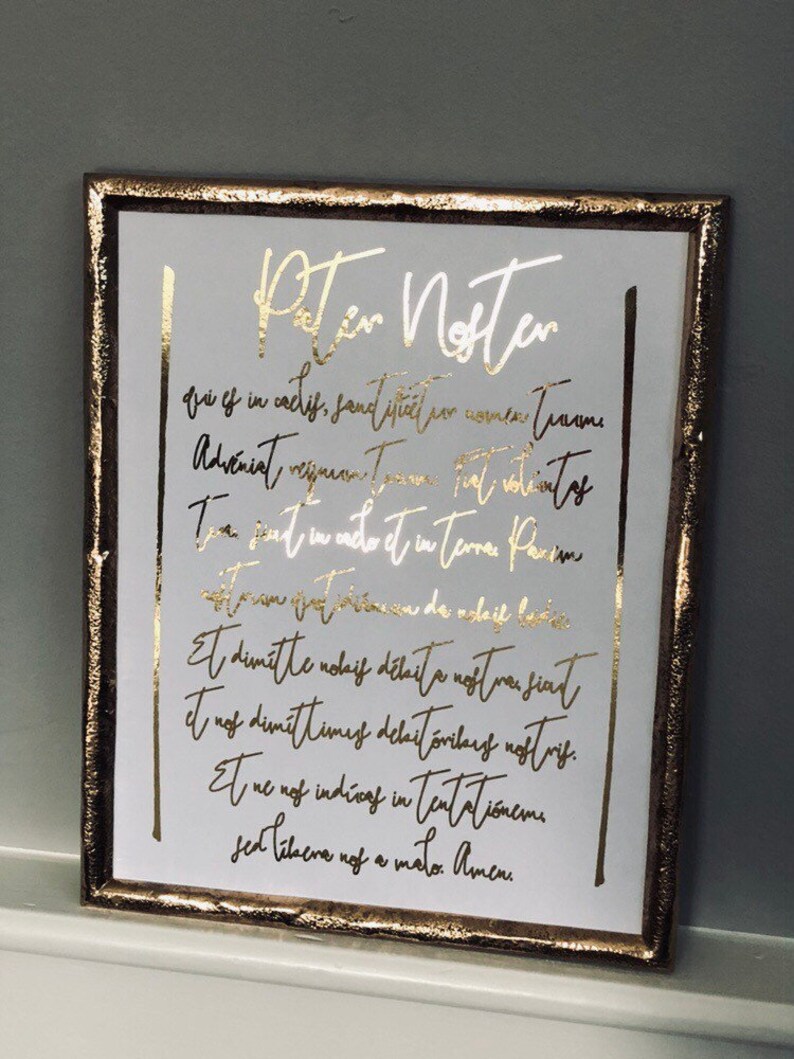 Pater Noster
qui es in caelis, sanctificétur nomen tuum.
Advéniat regnum tuum. Fiat volúntas
tua, sicut in caelo et in terra. Panem
nostrum quotidiánum da nobis hódie.
Et dimítte nobis débita nostra, sicut
et nos dimíttimus debitóribus nostris.
Et ne nos indúcas in tentatiónem,
sed líbera nos a malo. Amen.